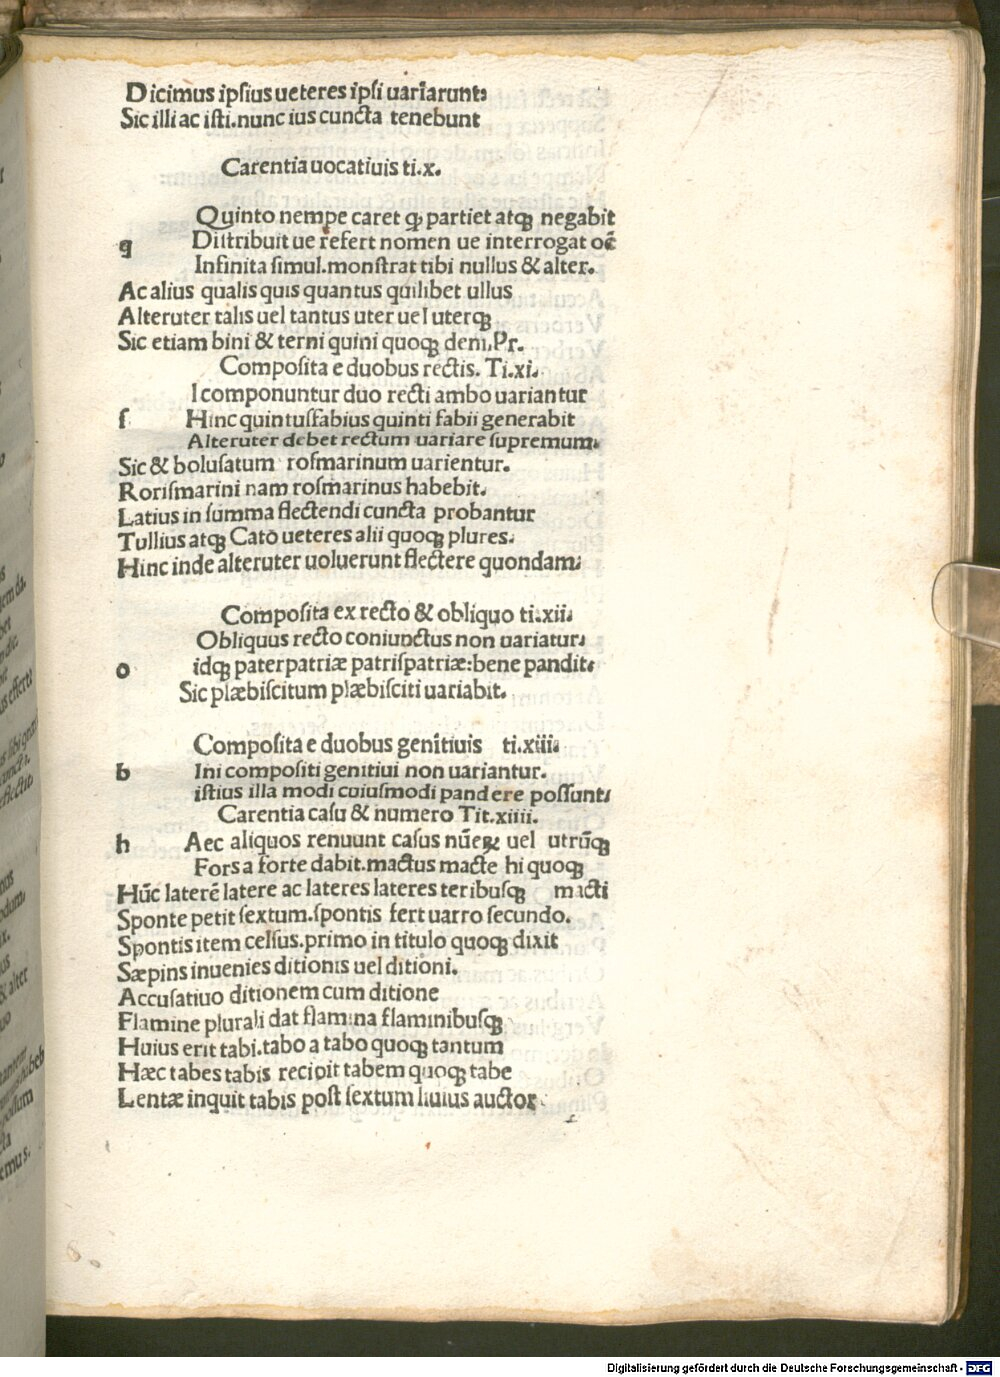 Dicimus ipſius ueteres ipſi uariarunt:
Sic illi ac iſti.nunc ius cuncta tenebunt
Carentia uocatiuis ti.x.
Quinto nempe caret ꝙ partiet atqꝫ negabit
q Diſtribuit ue refert nomen ue interrogat oē
Infinita ſimul.monſtrat tibi nullus & alter.
Ac alius qualis quis quantus quilibet ullus
Alteruter talis uel tantus uter uel uterqꝫ
Sic etiam bini & terni quini quoqꝫ deni.Pr.
Compoſita e duobus rectis. Ti.xi.
I componuntur duo recti ambo uariantur
ſ Hinc quintuſfabius quinti fabii generabit
Alteruter debet rectum uariare ſupremum.
Sic & boluſatum roſmarinum uarientur.
Roriſmarini nam roſmarinus habebit.
Latius in ſumma flectendi cuncta probantur
Tullius atqꝫ Cato ueteres alii quoqꝫ plures.
Hinc inde alteruter uoluerunt flectere quondam.
Compoſita ex recto & obliquo ti.xii.
Obliquus recto coniunctus non uariatur.
o idqꝫ paterpatriæ patriſpatriæ:bene pandit.
Sic plæbiſcitum plæbiſciti uariabit.
Compoſita e duobus genitiuis ti.xiii.
b Ini compoſiti genitiui non uariantur.
iſtius illa modi cuiuſmodi pandere poſſunt.
Carentia caſu & numero Tit.xiiii.
h Aec aliquos renuunt caſus nūeꝝ uel utrūqꝫ
Fors a forte dabit.mactus macte hi quoqꝫ
Hūc laterē latere ac lateres lateres teribuſqꝫ macti
Sponte petit ſextum.ſpontis fert uarro ſecundo.
Spontis item celſus.primo in titulo quoqꝫ dixit
Sæpins inuenies ditionis uel ditioni.
Accuſatiuo ditionem cum ditione
Flamine plurali dat flamina flaminibuſqꝫ
Huius erit tabi.tabo a tabo quoqꝫ tantum
Hæc tabes tabis recipit tabem quoqꝫ tabe
Lentæ inquit tabis poſt ſextum liuius auctor.
Digitalisierung gefördert durch die Deutsche Forschungsgemeinschaft - DFG